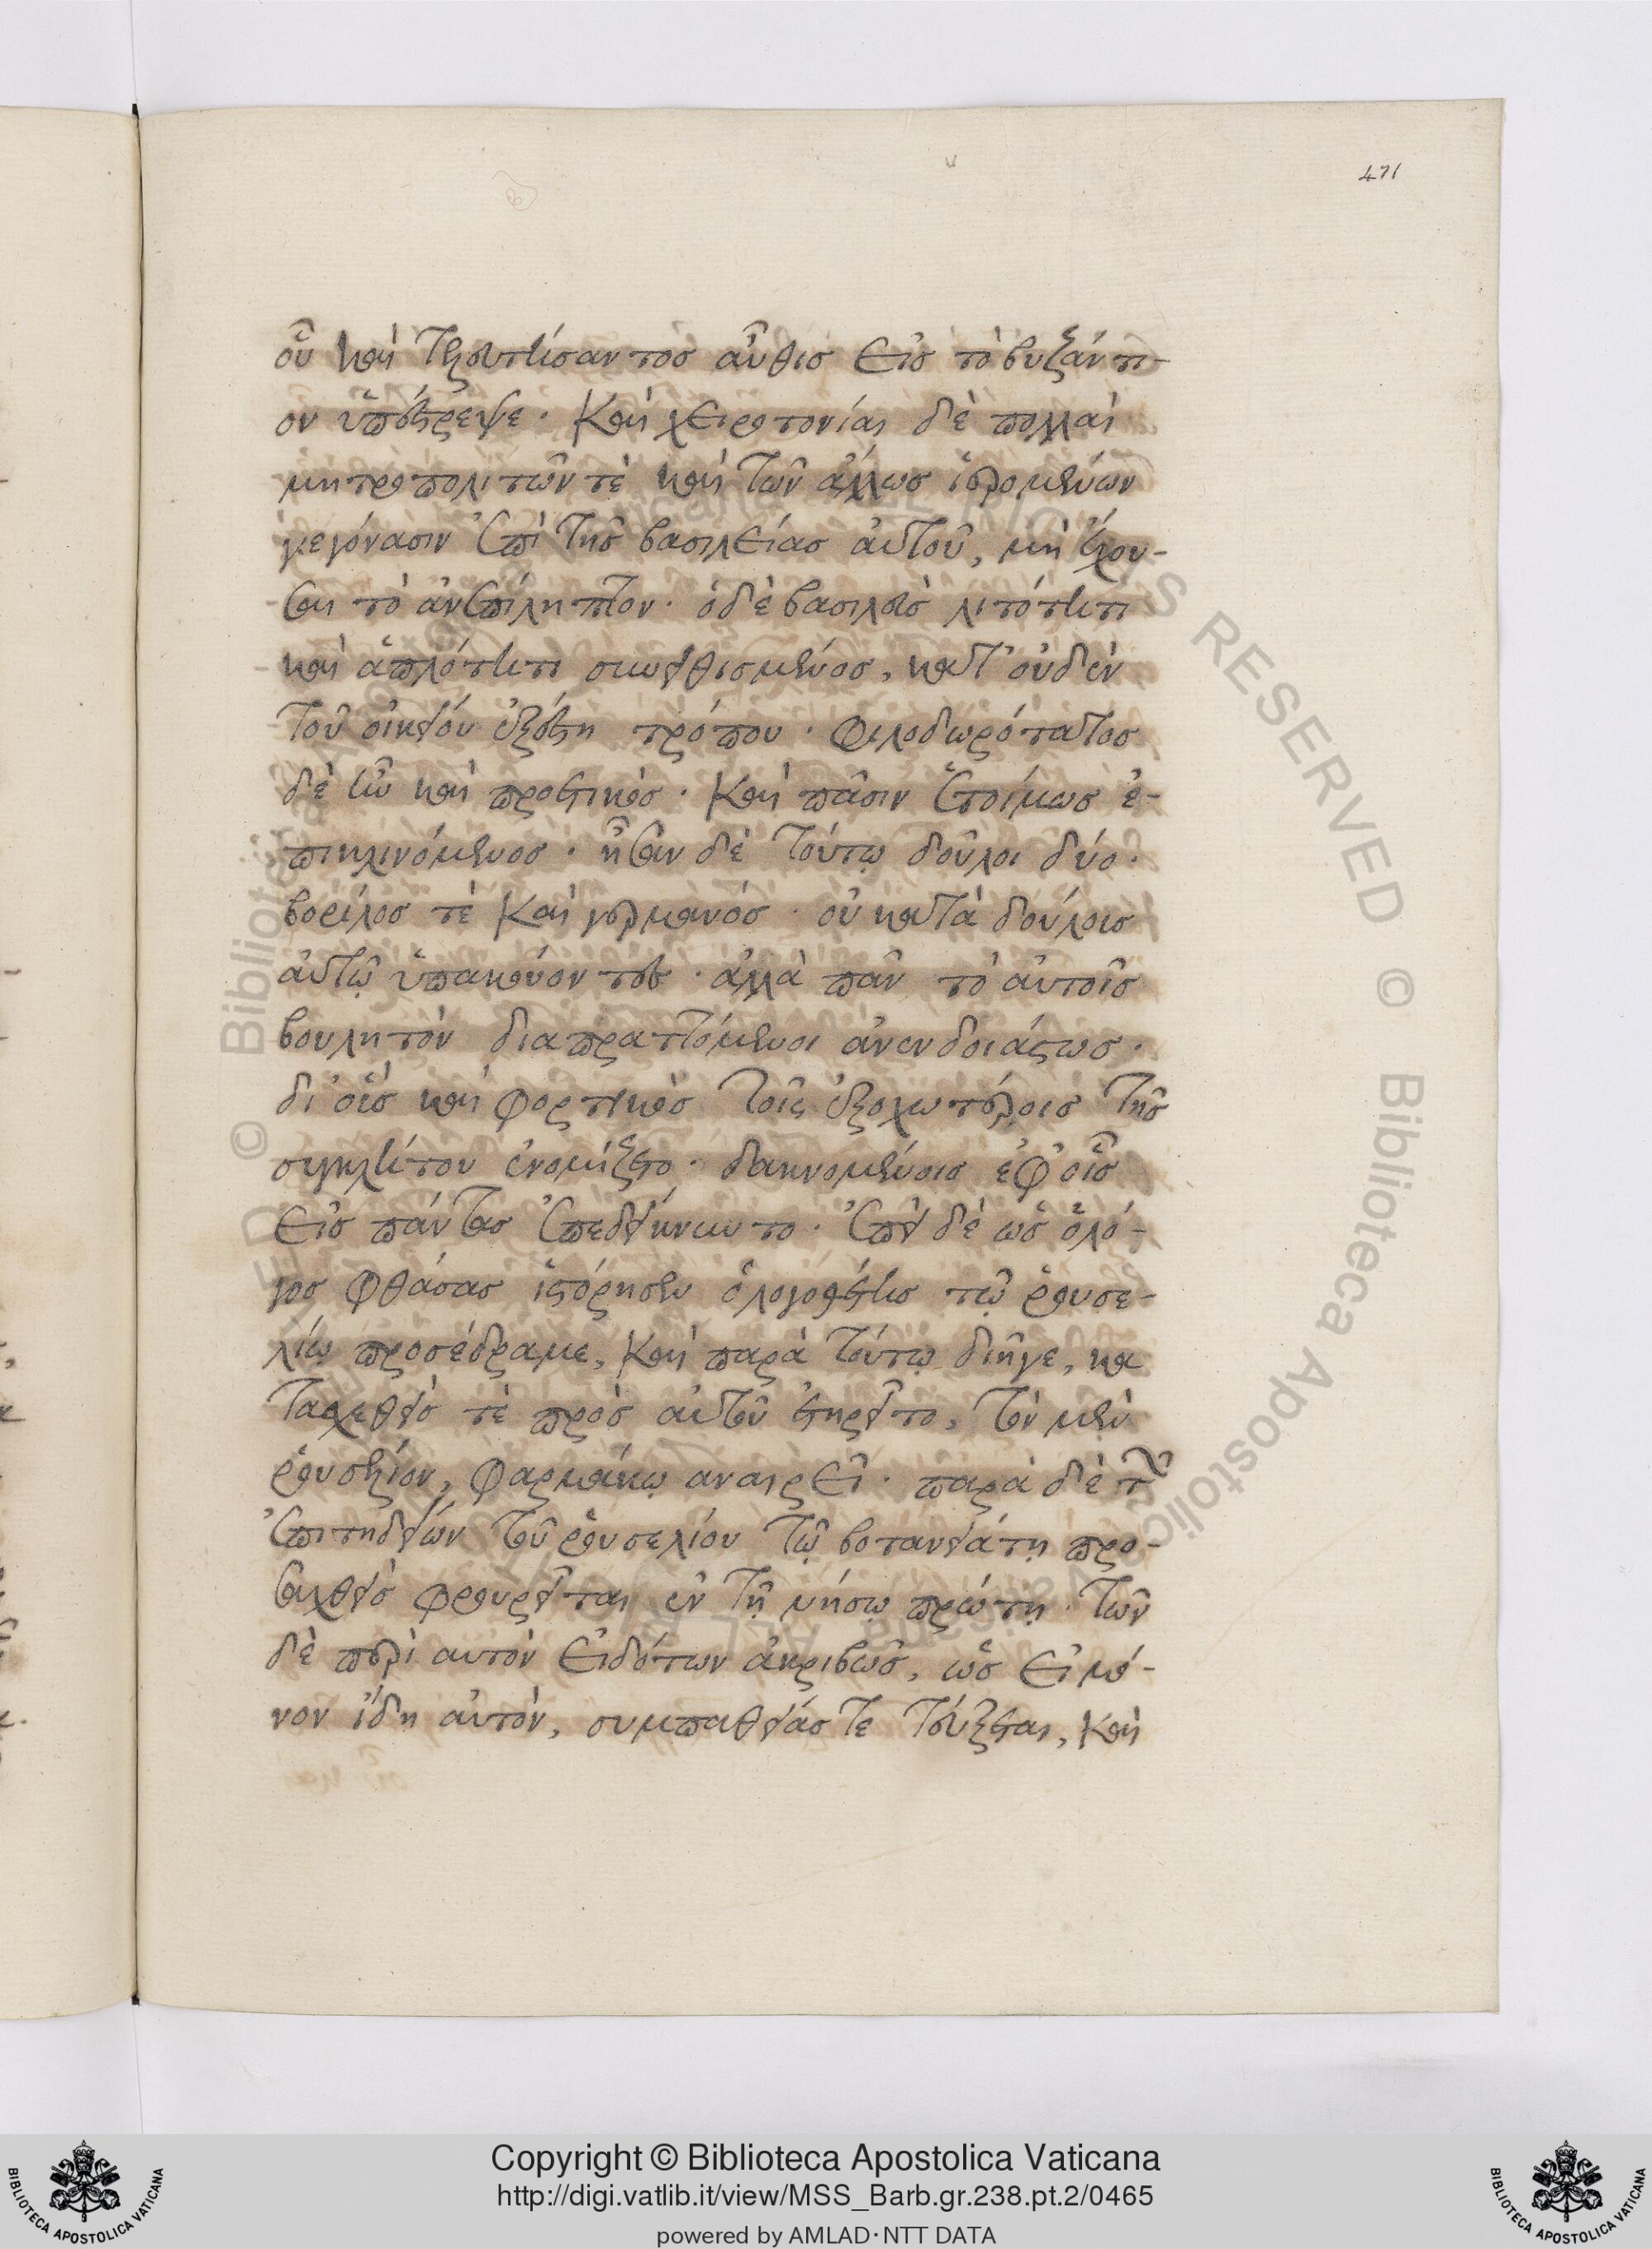 471
οὗ καὶ τελευτήσαντος αὖθις εἰς τὸ βυζάντι-
ον ὑπέστρεψε· καὶ χειροτονίαι δὲ πολλαὶ
μητροπολιτῶν τὲ καὶ τῶν ἄλλως ἱερωμένων
γεγόνασιν ἐπὶ τῆς βασιλείας αὐτοῦ, μὴ ἔχου-
σαι τὸ ἀνεπίληπτον· ὁ δὲ βασιλεὺς λιτότητι
καὶ ἁπλότητι συνειθισμένος, κατ' οὐδὲν
τοῦ οἰκείου ἐξέστη τρόπου· φιλοδωρότατος
δὲ ἦν καὶ προετικός· καὶ πᾶσιν ἑτοίμως ἐ-
πικλινόμενος· ἦσαν δὲ τούτῳ δοῦλοι δύο·
βορίλος τὲ καὶ γερμανός· οὐ κατὰ δούλοις
αὐτῷ ὑπακούοντες· ἀλλὰ πᾶν τὸ αὐτοῖς
βουλητὸν διαπραττόμενοι ἀνενδοιάστως·
δι οἷς καὶ φορτικὸς τοῖς ἐξοχωτέροις τῆς
συγκλήτου ἐνομίζετο· δακνομένοις ἐφ' οἷς
εἰς πάντας ἐπεδείκνυντο· ἐπεὶ δὲ ὡς ὁ λό-
γος φθάσας ἱστόρησεν ὁ λογοθέτης τῷ ῥουσε-
λίῳ προσέδραμε, καὶ παρὰ τούτῳ διῆγε, κα
τασχεθεὶς τὲ πρὸς αὐτοῦ ἐτηρεῖτο, τὸν μὲν
ῥουσέλιον, φαρμάκῳ αναιρεῖ· παρὰ δὲ τῶν
ἐπιτηδείων τοῦ ῥουσελίου τῷ βοτανειάτῃ προ-
σαχθεὶς φρουρεῖται ἐν τῇ νήσῳ πρώτῃ· τῶν
δὲ περὶ αυτὸν εἰδότων ἀκριβῶς, ὡς εἰ μό-
νον ἴδη αὐτὸν, συμπαθείας τε τεύξεται, καὶ
Copyright © Biblioteca Apostolica Vaticana
http://digi.vatlib.it/view/MSS_Barb.gr.238.pt.2/0465
powered by AMLAD·NTT DATA